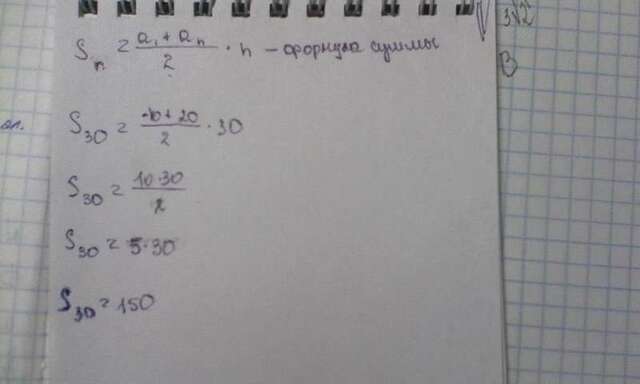 Sₙ = (a₁ + aₙ)/2 · n – формула суммы
S₃₀ = (-10 + 20)/2 · 30
S₃₀ = (10·30)/2
S₃₀ = 5·30
S₃₀ = 150
3√2
В